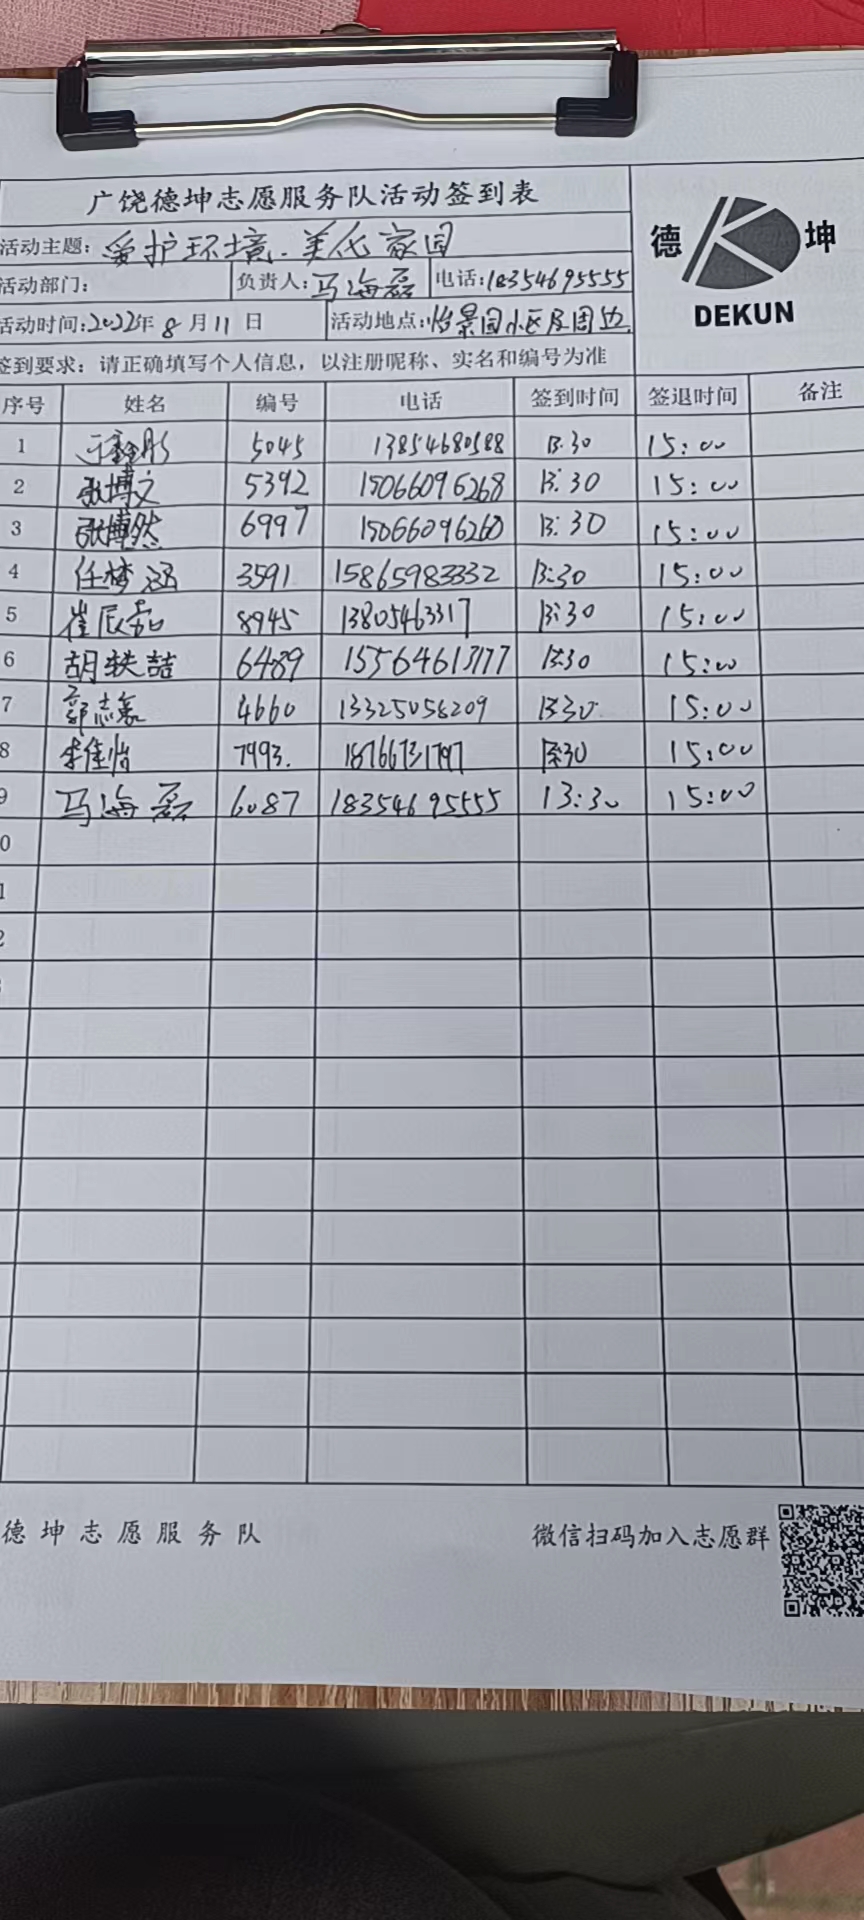 广饶德坤志愿服务队活动签到表
德 坤
DEKUN
活动主题: 爱护环境.美化家园
活动部门: 负责人: 马海磊 电话: 18354695555
活动时间: 2022年 8 月 11 日 活动地点: 怡景园小区及周边
签到要求: 请正确填写个人信息, 以注册昵称、实名和编号为准
序号 姓名 编号 电话 签到时间 签退时间 备注
1 5045 13854680588 13:30 15:00
2 张博文 5392 15066096268 13:30 15:00
3 张博然 6997 15066096268 13:30 15:00
4 任梦涵 3591 15865983332 13:30 15:00
5 崔辰 8945 13805463317 13:30 15:00
6 胡轶喆 6489 15:00 13:30
7 郭志 4660 13325058209 13:30 15:00
8 李佳怡 7493. 18766731797 13:30 15:00
9 马海磊 6087 18354695555 13:30 15:00
0
1
2
德坤志愿服务队 微信扫码加入志愿群